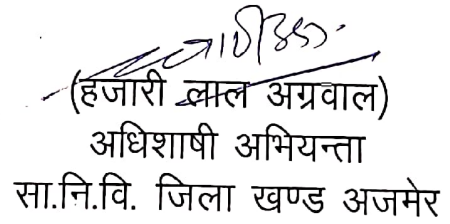 (हजारी लाल अग्रवाल)
अधिशाषी अभियन्ता
सा.नि.वि. जिला खण्ड अजमेर